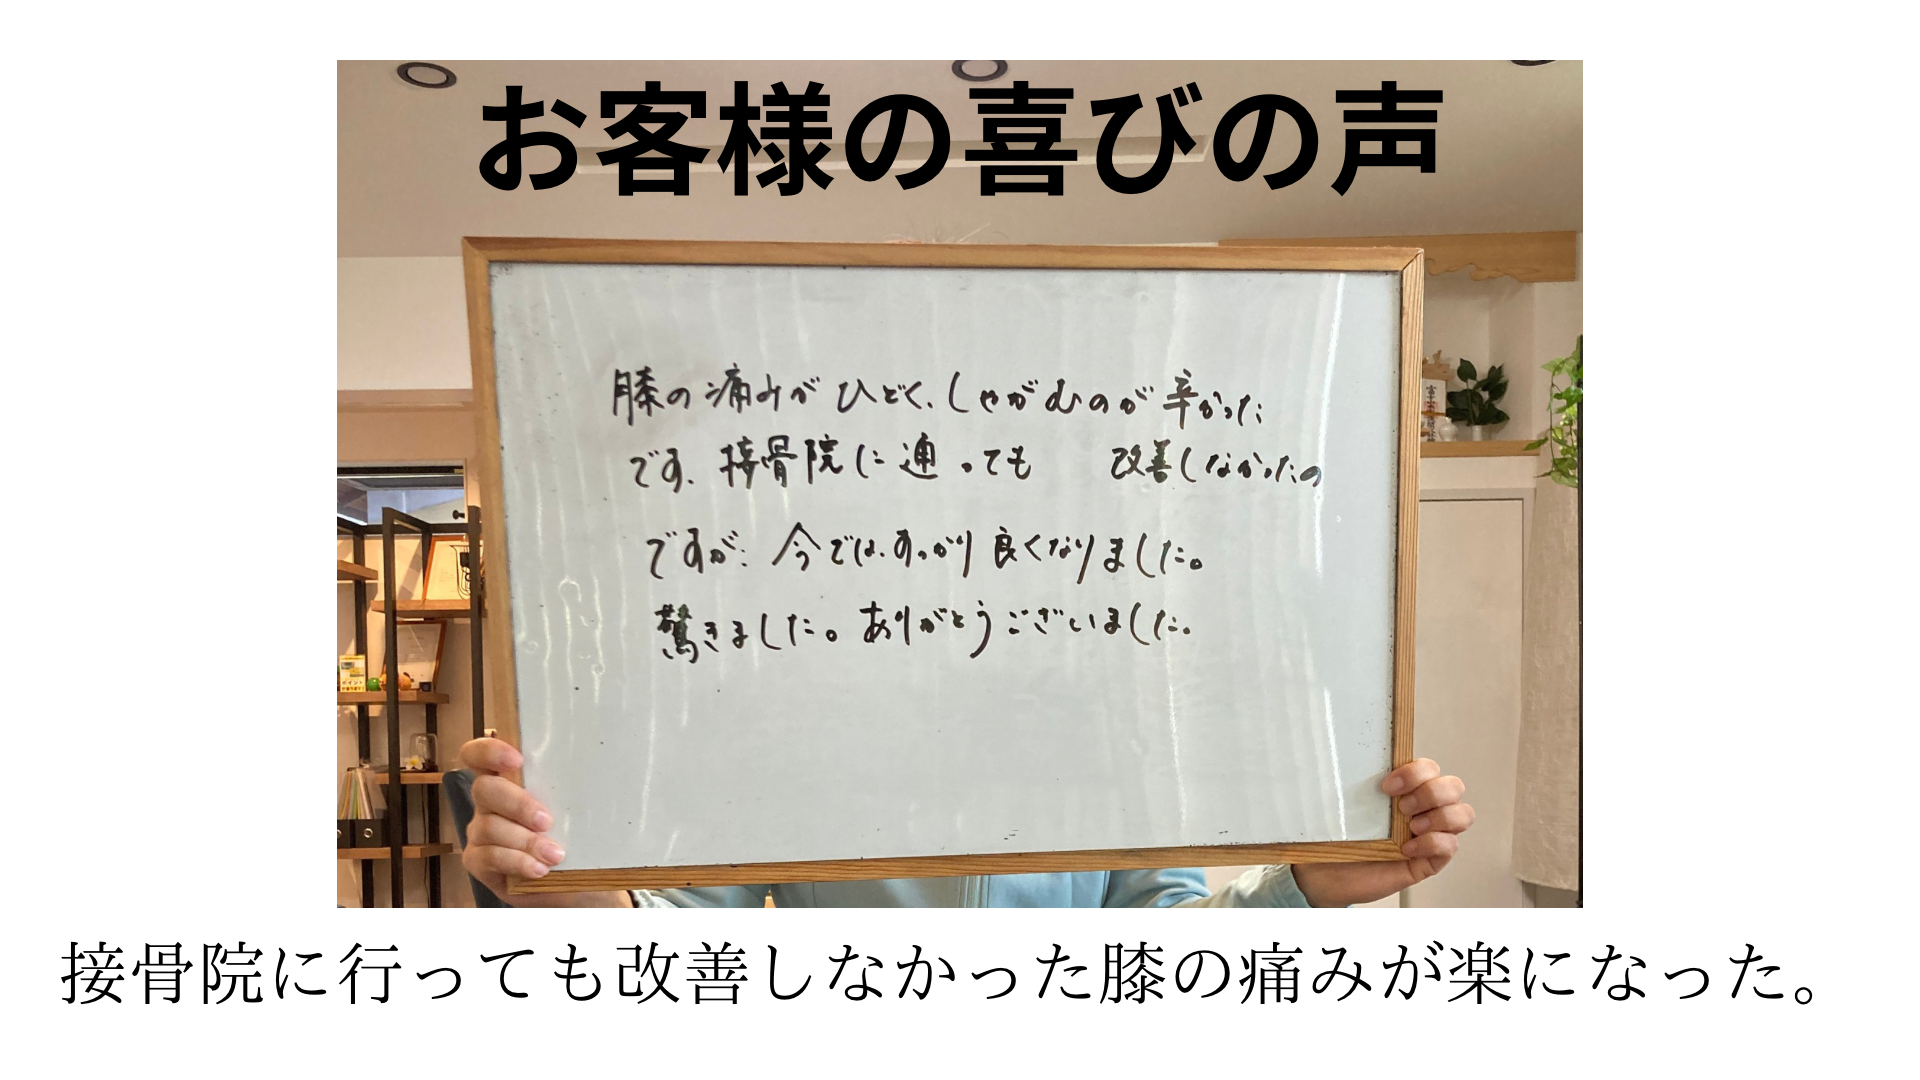 お客様の喜びの声
膝の痛みがひどく、しゃがむのが辛かった
です。接骨院に通っても 改善しなかったの
ですが、今では、すっかり良くなりました。
驚きました。ありがとうございました。
接骨院に行っても改善しなかった膝の痛みが楽になった。